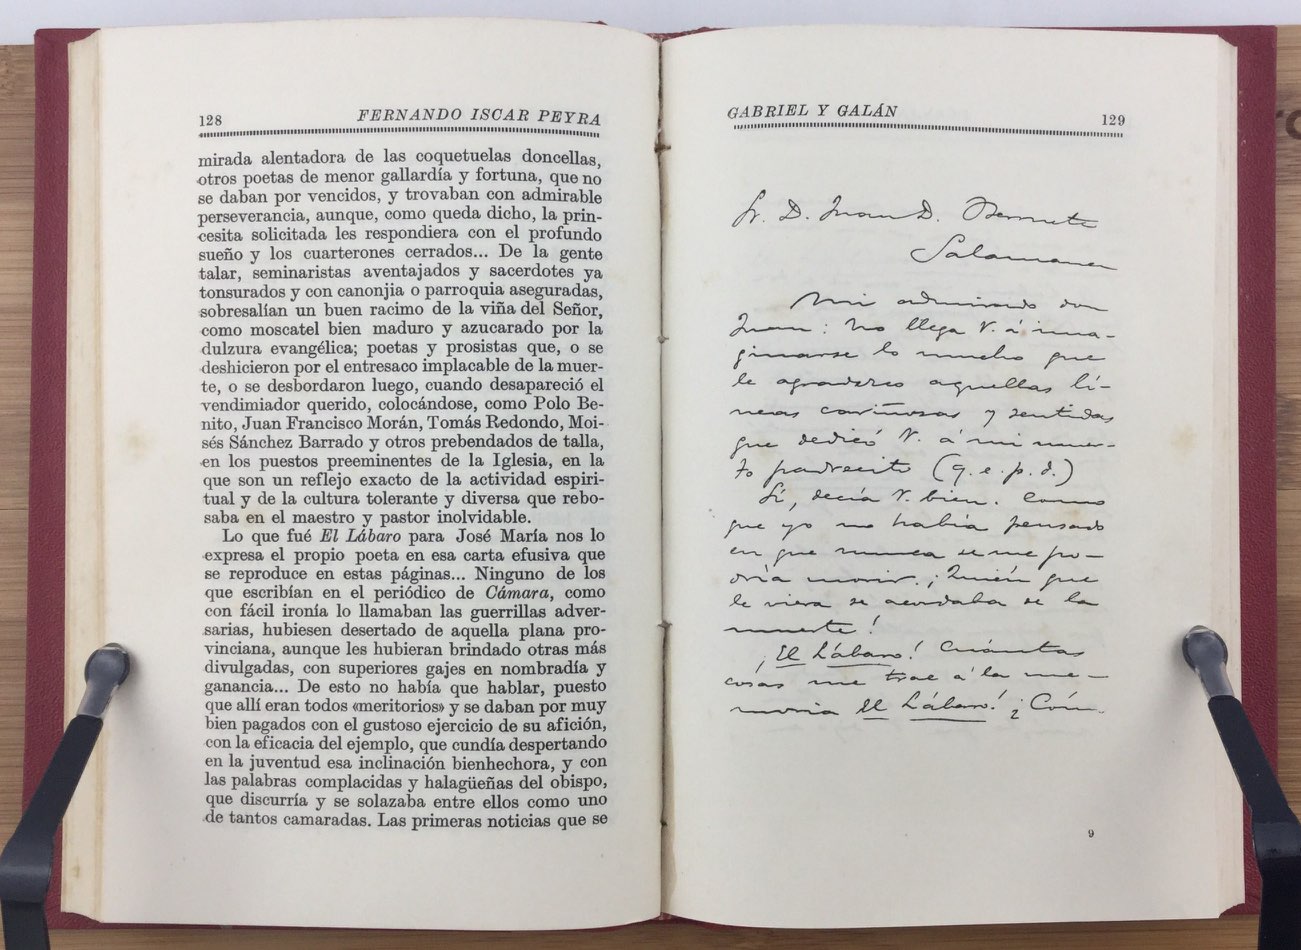 128 FERNANDO ISCAR PEYRA
mirada alentadora de las coquetuelas doncellas,
otros poetas de menor gallardía y fortuna, que no
se daban por vencidos, y trovaban con admirable
perseverancia, aunque, como queda dicho, la prin-
cesita solicitada les respondiera con el profundo
sueño y los cuarterones cerrados... De la gente
talar, seminaristas aventajados y sacerdotes ya
tonsurados y con canonjia o parroquia aseguradas,
sobresalían un buen racimo de la viña del Señor,
como moscatel bien maduro y azucarado por la
dulzura evangélica; poetas y prosistas que, o se
deshicieron por el entresaco implacable de la muer-
te, o se desbordaron luego, cuando desapareció el
vendimiador querido, colocándose, como Polo Be-
nito, Juan Francisco Morán, Tomás Redondo, Moi-
sés Sánchez Barrado y otros prebendados de talla,
en los puestos preeminentes de la Iglesia, en la
que son un reflejo exacto de la actividad espiri-
tual y de la cultura tolerante y diversa que rebo-
saba en el maestro y pastor inolvidable.
Lo que fué El Lábaro para José María nos lo
expresa el propio poeta en esa carta efusiva que
se reproduce en estas páginas... Ninguno de los
que escribían en el periódico de Cámara, como
con fácil ironía lo llamaban las guerrillas adver-
sarias, hubiesen desertado de aquella plana pro-
vinciana, aunque les hubieran brindado otras más
divulgadas, con superiores gajes en nombradía y
ganancia... De esto no había que hablar, puesto
que allí eran todos «meritorios» y se daban por muy
bien pagados con el gustoso ejercicio de su afición,
con la eficacia del ejemplo, que cundía despertando
en la juventud esa inclinación bienhechora, y con
las palabras complacidas y halagüeñas del obispo,
que discurría y se solazaba entre ellos como uno
de tantos camaradas. Las primeras noticias que se
GABRIEL Y GALÁN 129
Sr. D. Juan D. Berrueta
Salamanca
Mi admirado don
Juan: No llega V. á ima-
ginarse lo mucho que
le agradezco aquellas lí-
neas cariñosas y sentidas
que dedicó V. á mi muer-
to padrecito (q. e. p. d.)
Sí, decía V. bien. Como
que yo no había pensado
en que nunca se me po-
dría morir. ¡Quién que
le viera se acordaba de la
muerte!
¡El Lábaro! Cuántas
cosas me trae á la me-
moria El Lábaro! ¿Cóm-
9